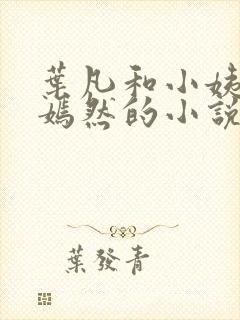 葉凡和小姨
嫣然的小說
葉發青